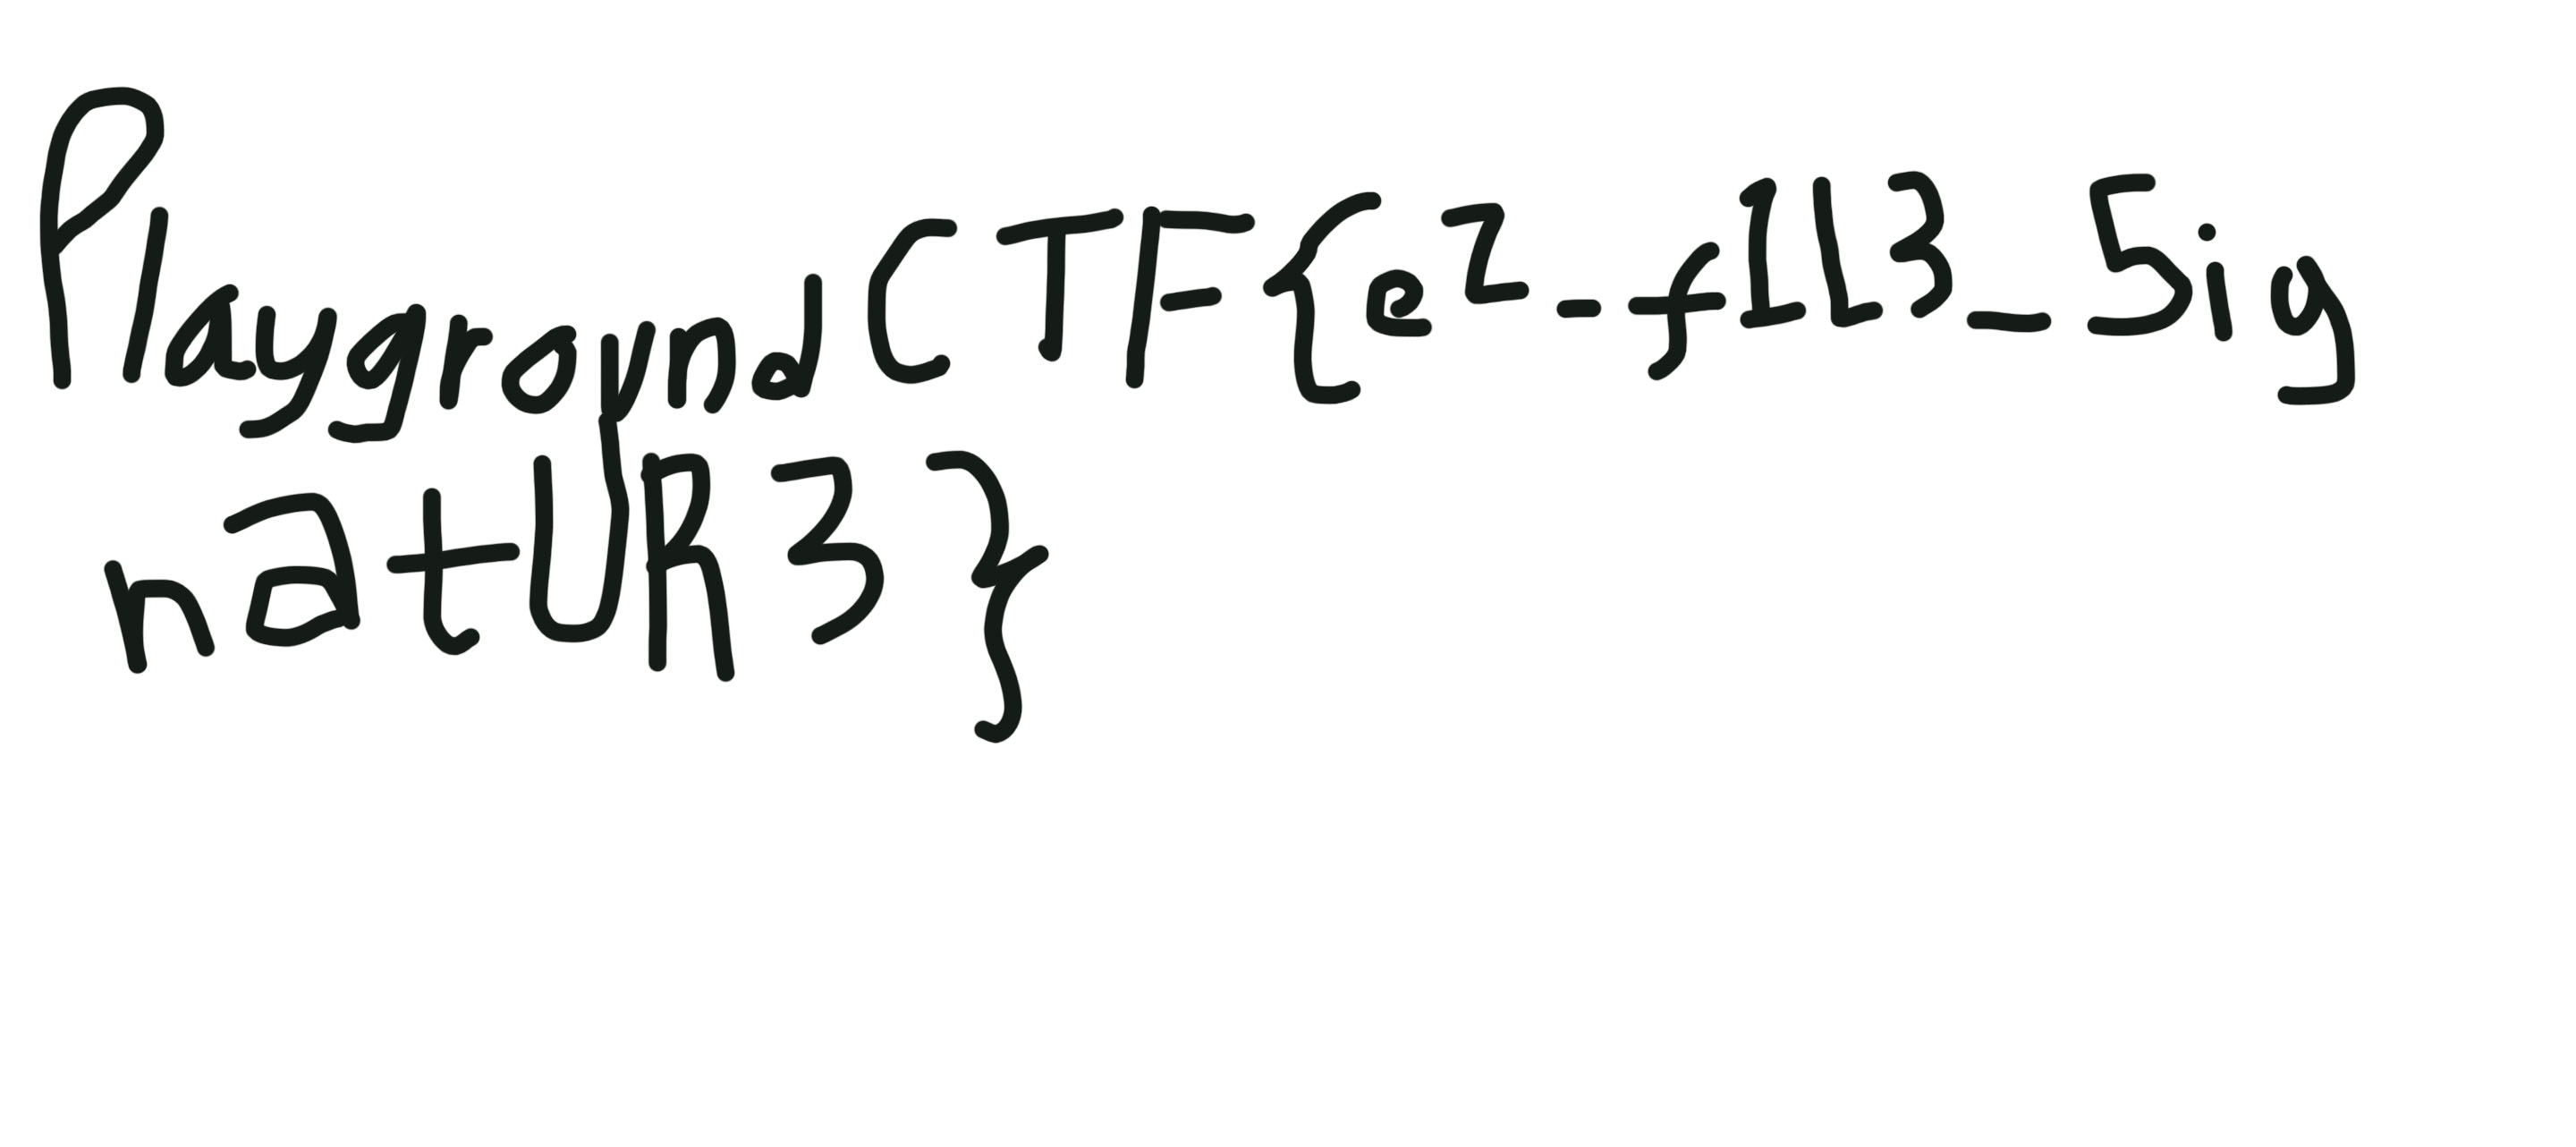 PlaygroundCTF{eZ_f1L3_5ig
natUR3}